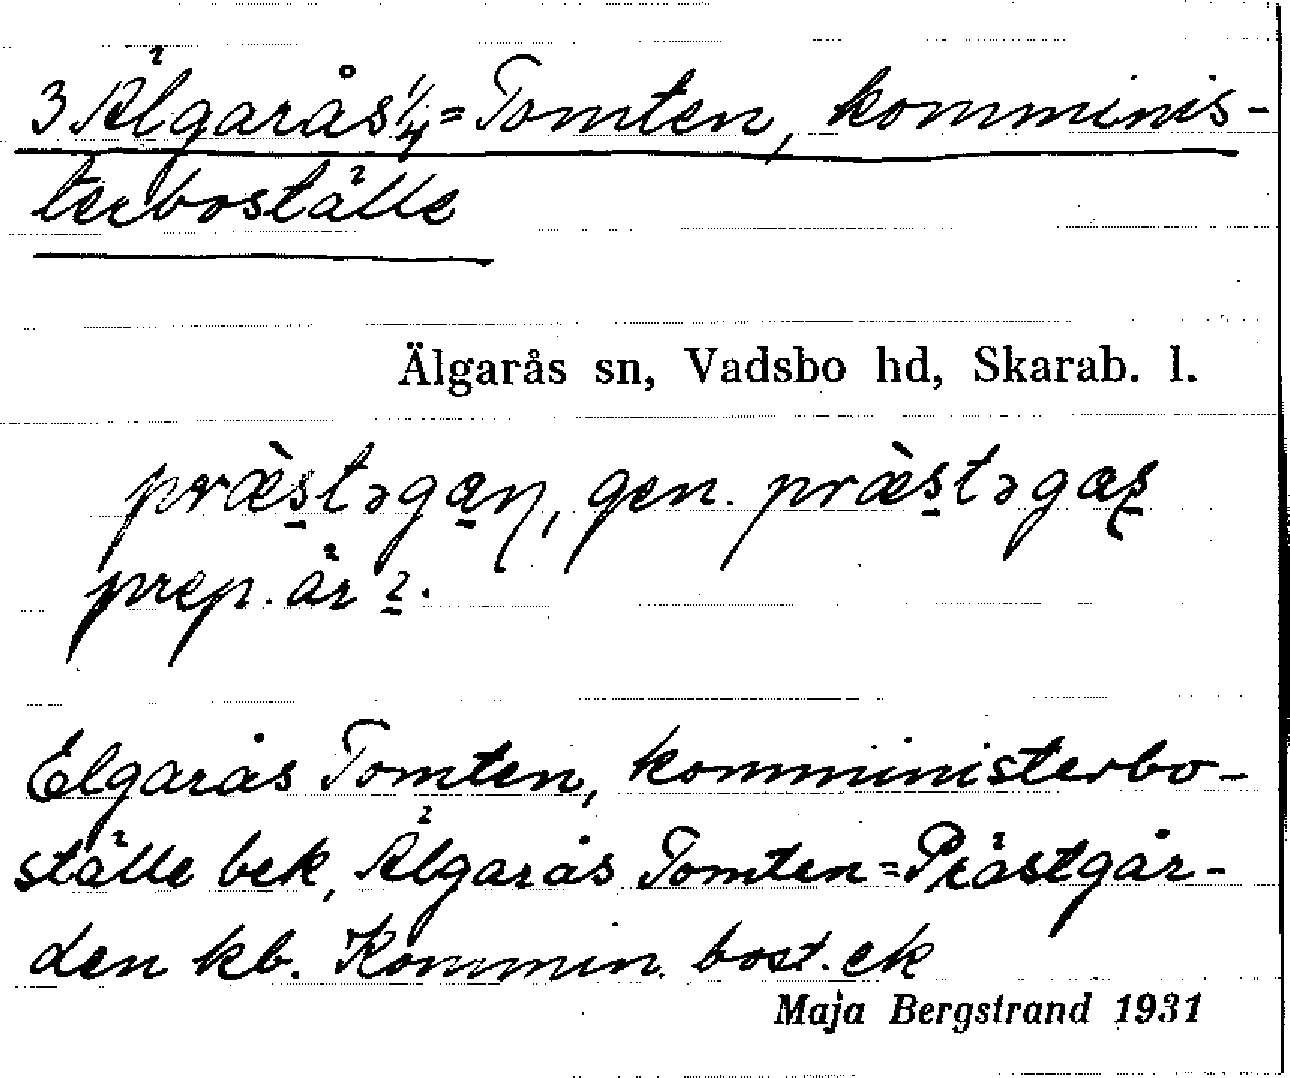 3 Älgarås 1/4 = Tomten, komminis-
terboställe
Älgarås sn, Vadsbo hd, Skarab. l.
præ̀s̱təga̱n, gen. præ̀s̱təgas̱
prep. är 2̱.
Elgarås Tomten, komministerbo-
ställe bek, Älgarås Tomten = Prästgår-
den kb. Kommin. bost. ek
Maja Bergstrand 1931